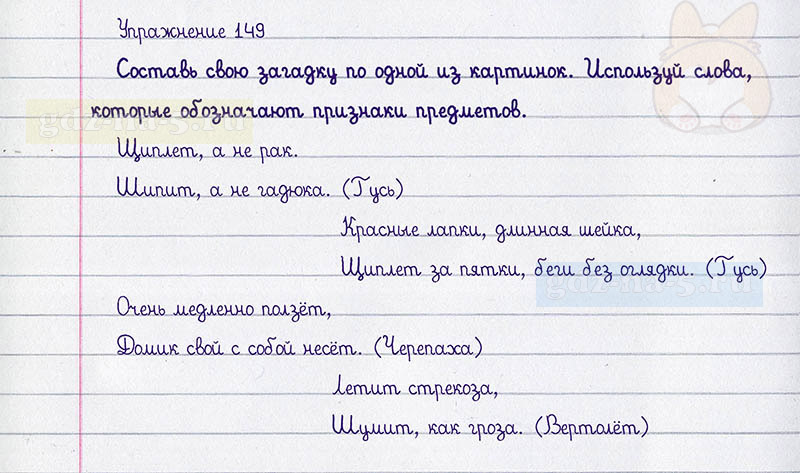 Упражнение 149
Составь свою загадку по одной из картинок. Используй слова,
которые обозначают признаки предметов.
gdz-na-5.ru
Щиплет, а не рак.
Шипит, а не гадюка. (Гусь)
Красные лапки, длинная шейка,
Щиплет за пятки, беги без оглядки. (Гусь)
gdz-na-5.ru
Очень медленно ползёт,
Домик свой с собой несёт. (Черепаха)
Летит стрекоза,
Шумит, как гроза. (Вертолёт)